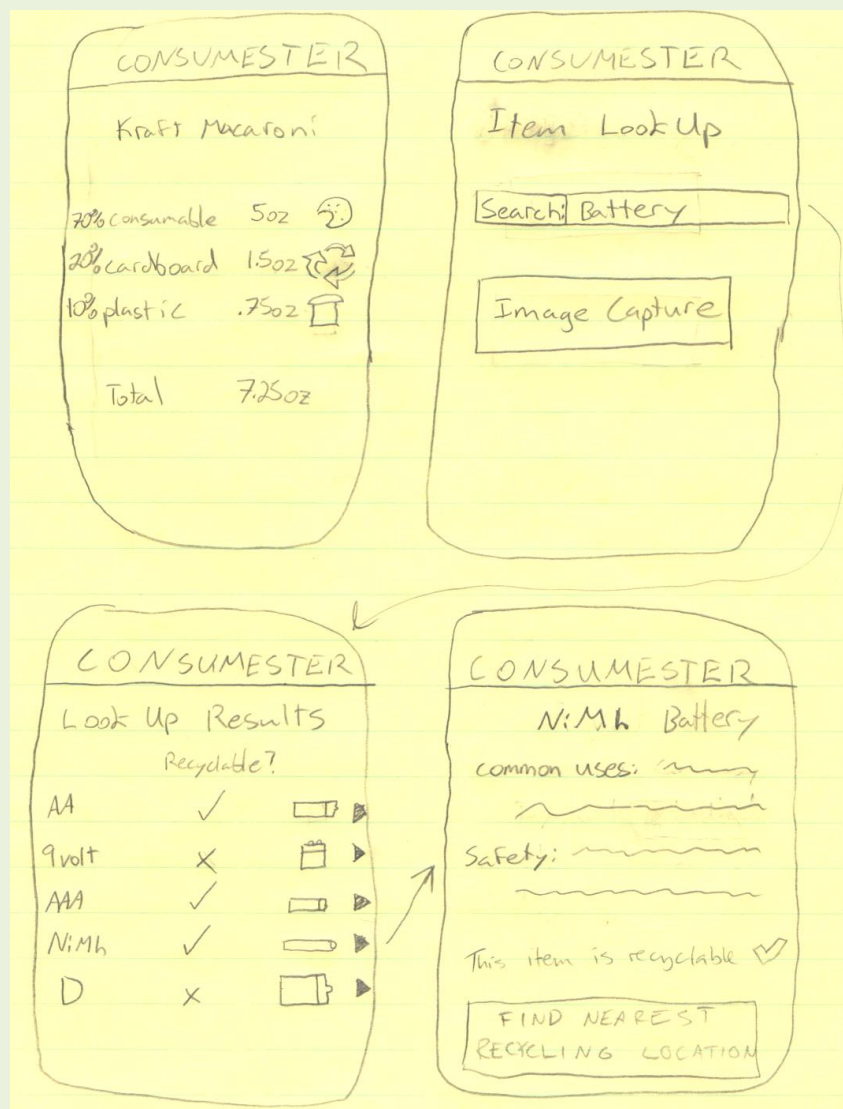 CONSUMESTER
Kraft Macaroni
70% consumable 5oz
20% cardboard 1.5oz
10% plastic .75oz
Total 7.25oz
CONSUMESTER
Item Look Up
Search: Battery
Image Capture
CONSUMESTER
Look Up Results
Recyclable?
AA
9volt
AAA
NiMh
D
CONSUMESTER
NiMh Battery
common uses:
Safety:
This item is recyclable
FIND NEAREST
RECYCLING LOCATION